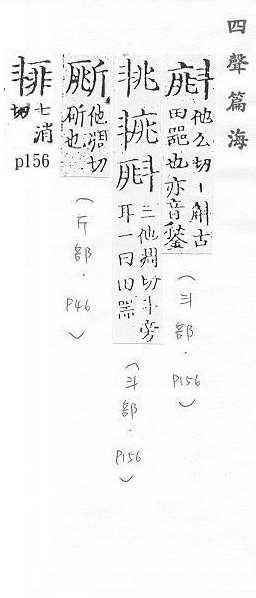 四聲篇海
他么切丨斛古
田器也亦音鍫
（斗部．P156）
三他凋切斗旁
耳一曰田器
（斗部．P156）
他凋切
斫也
（斤部．P46）
七消
切
p156